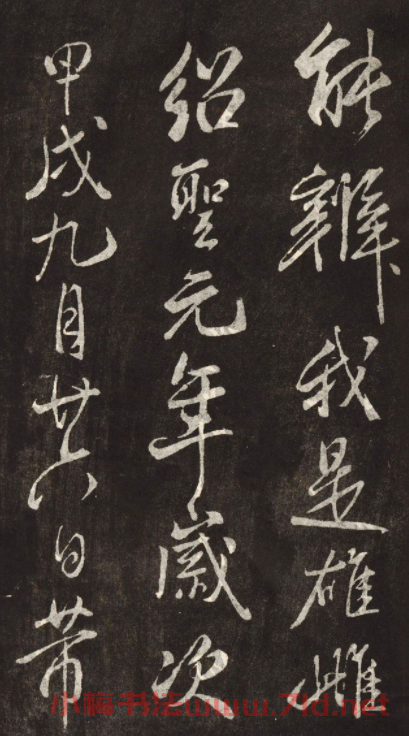 能辨我是雄雌
紹聖元年歲次
甲戌九月廿六日帶
小梅书法www.7ld.net